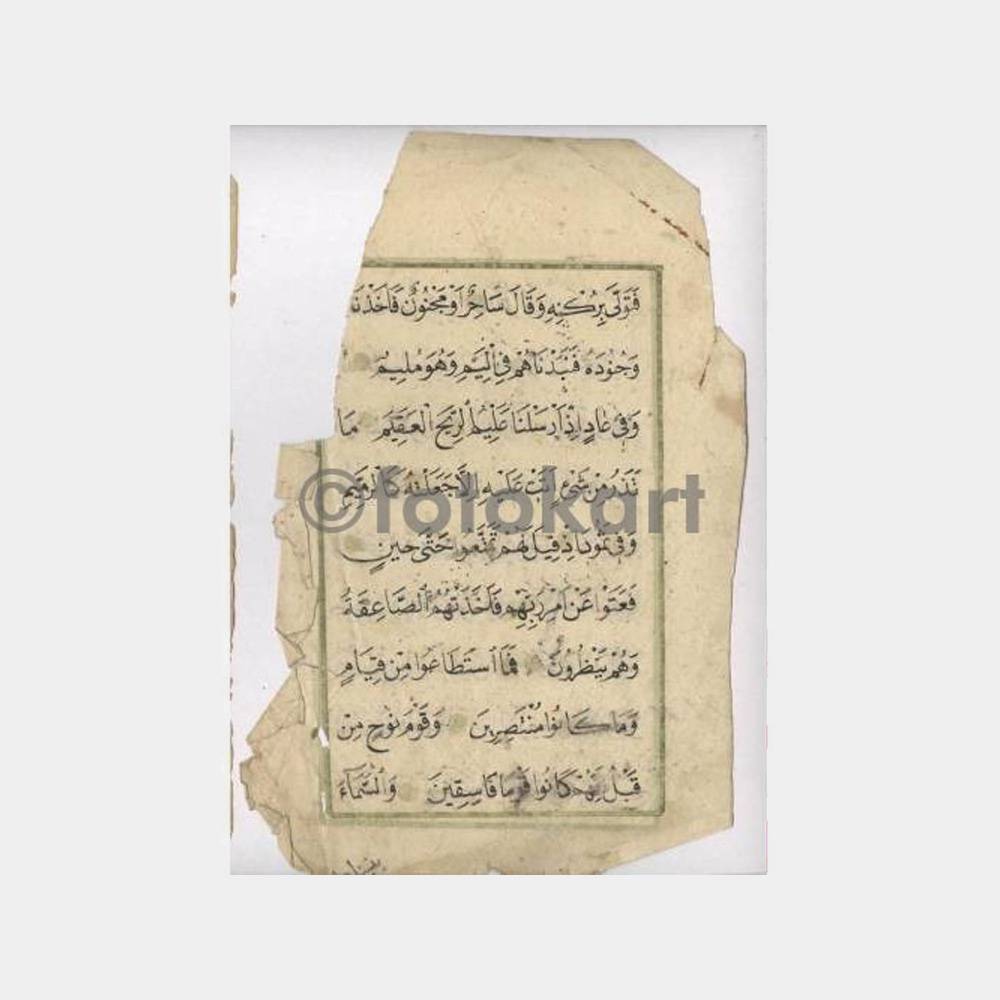 فَتَوَلّٰى بِرُكْنِهِ وَقَالَ سَاحِرٌ اَوْ مَجْنُونٌ فَاَخَذْنَا
وَجُنُودَهُ فَنَبَذْنَاهُمْ فِي الْيَمِّ وَهُوَ مُلِيمٌ
وَفِي عَادٍ اِذْ اَرْسَلْنَا عَلَيْهِمُ الرِّيحَ الْعَقِيمَ مَا
تَذَرُ مِنْ شَيْءٍ اَتَتْ عَلَيْهِ اِلَّا جَعَلَتْهُ كَالرَّمِيمِ
©fotokart
وَفِي ثَمُودَ اِذْ قِيلَ لَهُمْ تَمَتَّعُوا حَتّٰى حِينٍ
فَعَتَوْا عَنْ اَمْرِ رَبِّهِمْ فَاَخَذَتْهُمُ الصَّاعِقَةُ
وَهُمْ يَنْظُرُونَ فَمَا اسْتَطَاعُوا مِنْ قِيَامٍ
وَمَا كَانُوا مُنْتَصِرِينَ وَقَوْمَ نُوحٍ مِنْ
قَبْلُ اِنَّهُمْ كَانُوا قَوْمًا فَاسِقِينَ وَالسَّمَاءَ